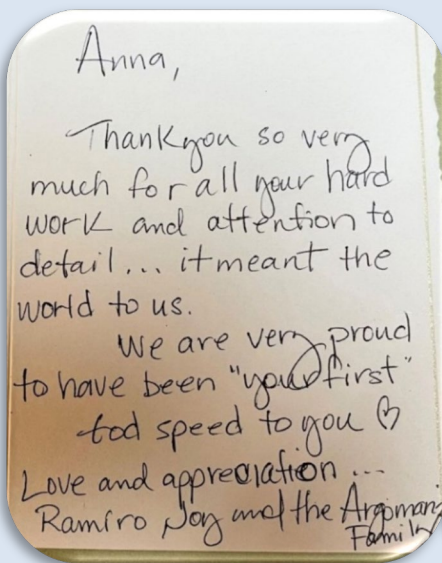 Anna,
Thankyou so very
much for all your hard
work and attention to
detail... it meant the
world to us.
We are very proud
to have been "your first"
God speed to you ♡
Love and appreciation ...
Ramiro Joy and the
Family